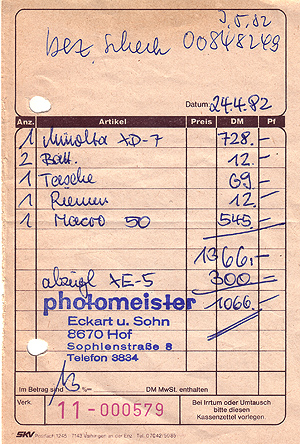 3.5.82
bez. Scheck 00848249
Datum: 24.4.82
Anz. Artikel Preis DM Pf
1 Minolta XD-7 728.–
2 Batt. 12.–
1 Tasche 69.–
1 Riemen 12.–
1 Macro 50 545.–
1366.–
abzügl XE-5 300.–
1066.–
photomeister
Eckart u. Sohn
8670 Hof
Sophienstraße 8
Telefon 3834
Im Betrag sind 13 %= DM MwSt. enthalten
Verk. 11-000579 Bei Irrtum oder Umtausch
bitte diesen
Kassenzettel vorlegen!
SKV Postfach 1245 · 7143 Vaihingen an der Enz · Tel.